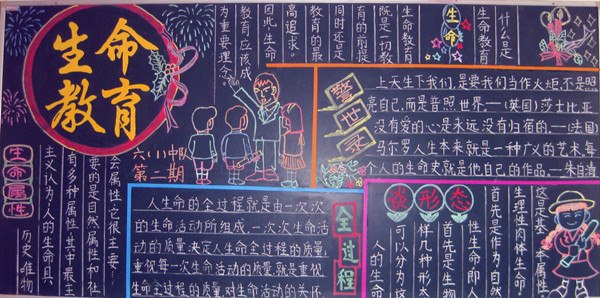 生命
教育
六(1)中队
第二期
什么是
生命教育
生命
生命教育
既是一切教
育的前提,
同时还是
教育的最
高追求,
因此,生命
教育应该成
为重要理念。
警世录
上天生下我们,是要我们当作火炬,不是照
亮自己,而是普照世界—(英国)莎士比亚
没有爱的心是永远没有归宿的.—(法国)
马尔罗人生本来就是一种广义的艺术,每
个人的生命史就是他自己的作品,—朱自清
生命属性
历史唯物
主义认为:人的生命具
有多种属性,其中最主
要的是自然属性和社
会属性,它很主要.
全过程
人生命的全过程就是由一次次
的生命活动所组成.一次次生命活
动的质量,决定人生命全过程的质量,
重视每一次生命活动的质量,就是重视
生命全过程的质量,对生命活动的关怀
谈形态
人的生命
可以分为这
样几种形态
首先是生物
性生命即人
首先是作为自然
生理性肉体生命,
这是基本属性